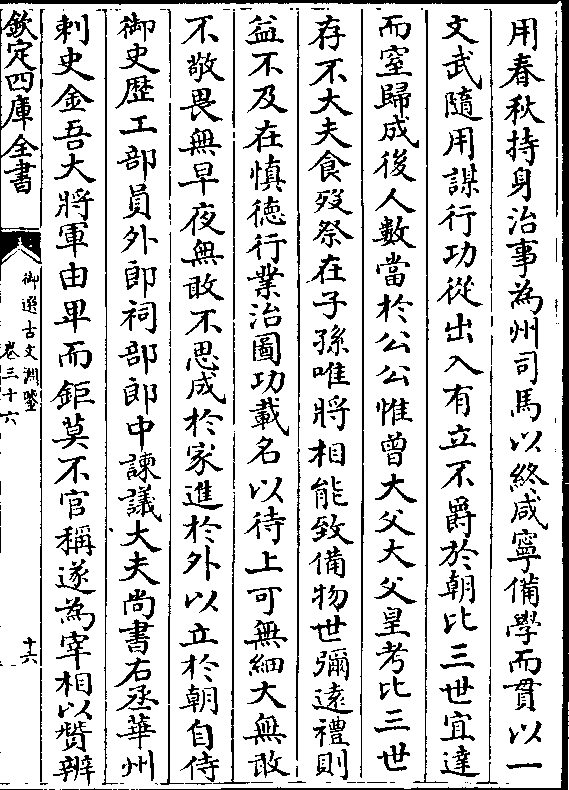 用春秋持身治事為州司馬以終咸寧備學而貫以一
文武隨用謀行功從出入有立不爵於朝比三世宜達
而窒歸成後人數當於公公惟曾大父大父皇考比三世
存不大夫食歿祭在子孫唯將相能致備物世彌遠禮則
益不及在慎德行業治圖功載名以待上可無細大無敢
不敬畏無早夜無敢不思成於家進於外以立於朝自侍
御史歴工部員外郎祠部郎中諫議大夫尚書右丞華州
刺史金吾大將軍由卑而鉅莫不官稱遂為宰相以贊辨
欽定四庫全書
御選古文淵鑒
卷三十六
十六